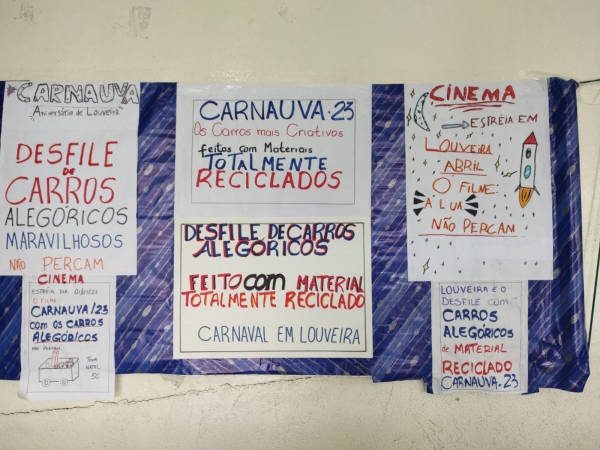 CARNAUVA
Aniversário de Louveira
DESFILE
DE
CARROS
ALEGÓRICOS
MARAVILHOSOS
NÃO PERCAM
CINEMA
ESTRÉIA DIA
O FILME
CARNAUVA/23
COM OS CARROS
ALEGÓRICOS
NÃO PERCAM
TURMA
NATAL
5C
CARNAUVA.23
Os Carros mais Criativos
feitos com Materiais
TOTALMENTE
RECICLADOS
DESFILE DE CARROS
ALEGORICOS
FEITO COM MATERIAL
TOTALMENTE RECICLADO
CARNAVAL EM LOUVEIRA
CINEMA
ESTRÉIA EM
LOUVEIRA
ABRIL
O FILME:
A LUA
NÃO PERCAM
LOUVEIRA E O
DESFILE COM
CARROS
ALEGÓRICOS
de MATERIAL
RECICLADO
CARNAUVA.23